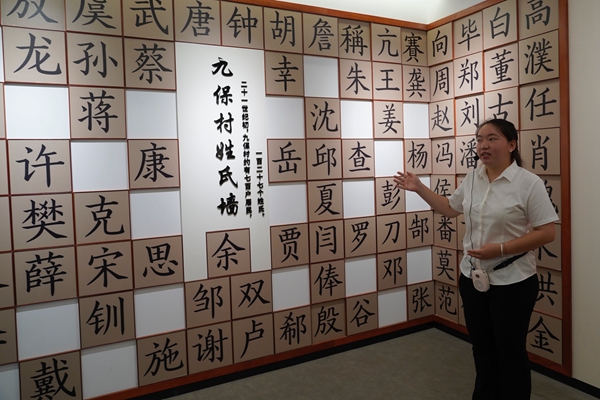 虞 武 唐 钟 胡 詹 稱 亢 赛 向 毕 白 高
龙 孙 蔡 幸 朱 王 龚 周 郑 董 濮
蒋 沈 姜 赵 刘 古 任
许 康 岳 邱 查 杨 冯 潘 肖
樊 克 夏 彭 刀 郜 侯 番
薛 宋 思 余 贾 闫 罗 邓 莫 洪
钏 邹 双 俸 张 范 金
戴 施 谢 卢 郗 殷 谷
九保村姓氏墙
二十一世纪初,九保村约有七百户居民,
一百二十七个姓氏。